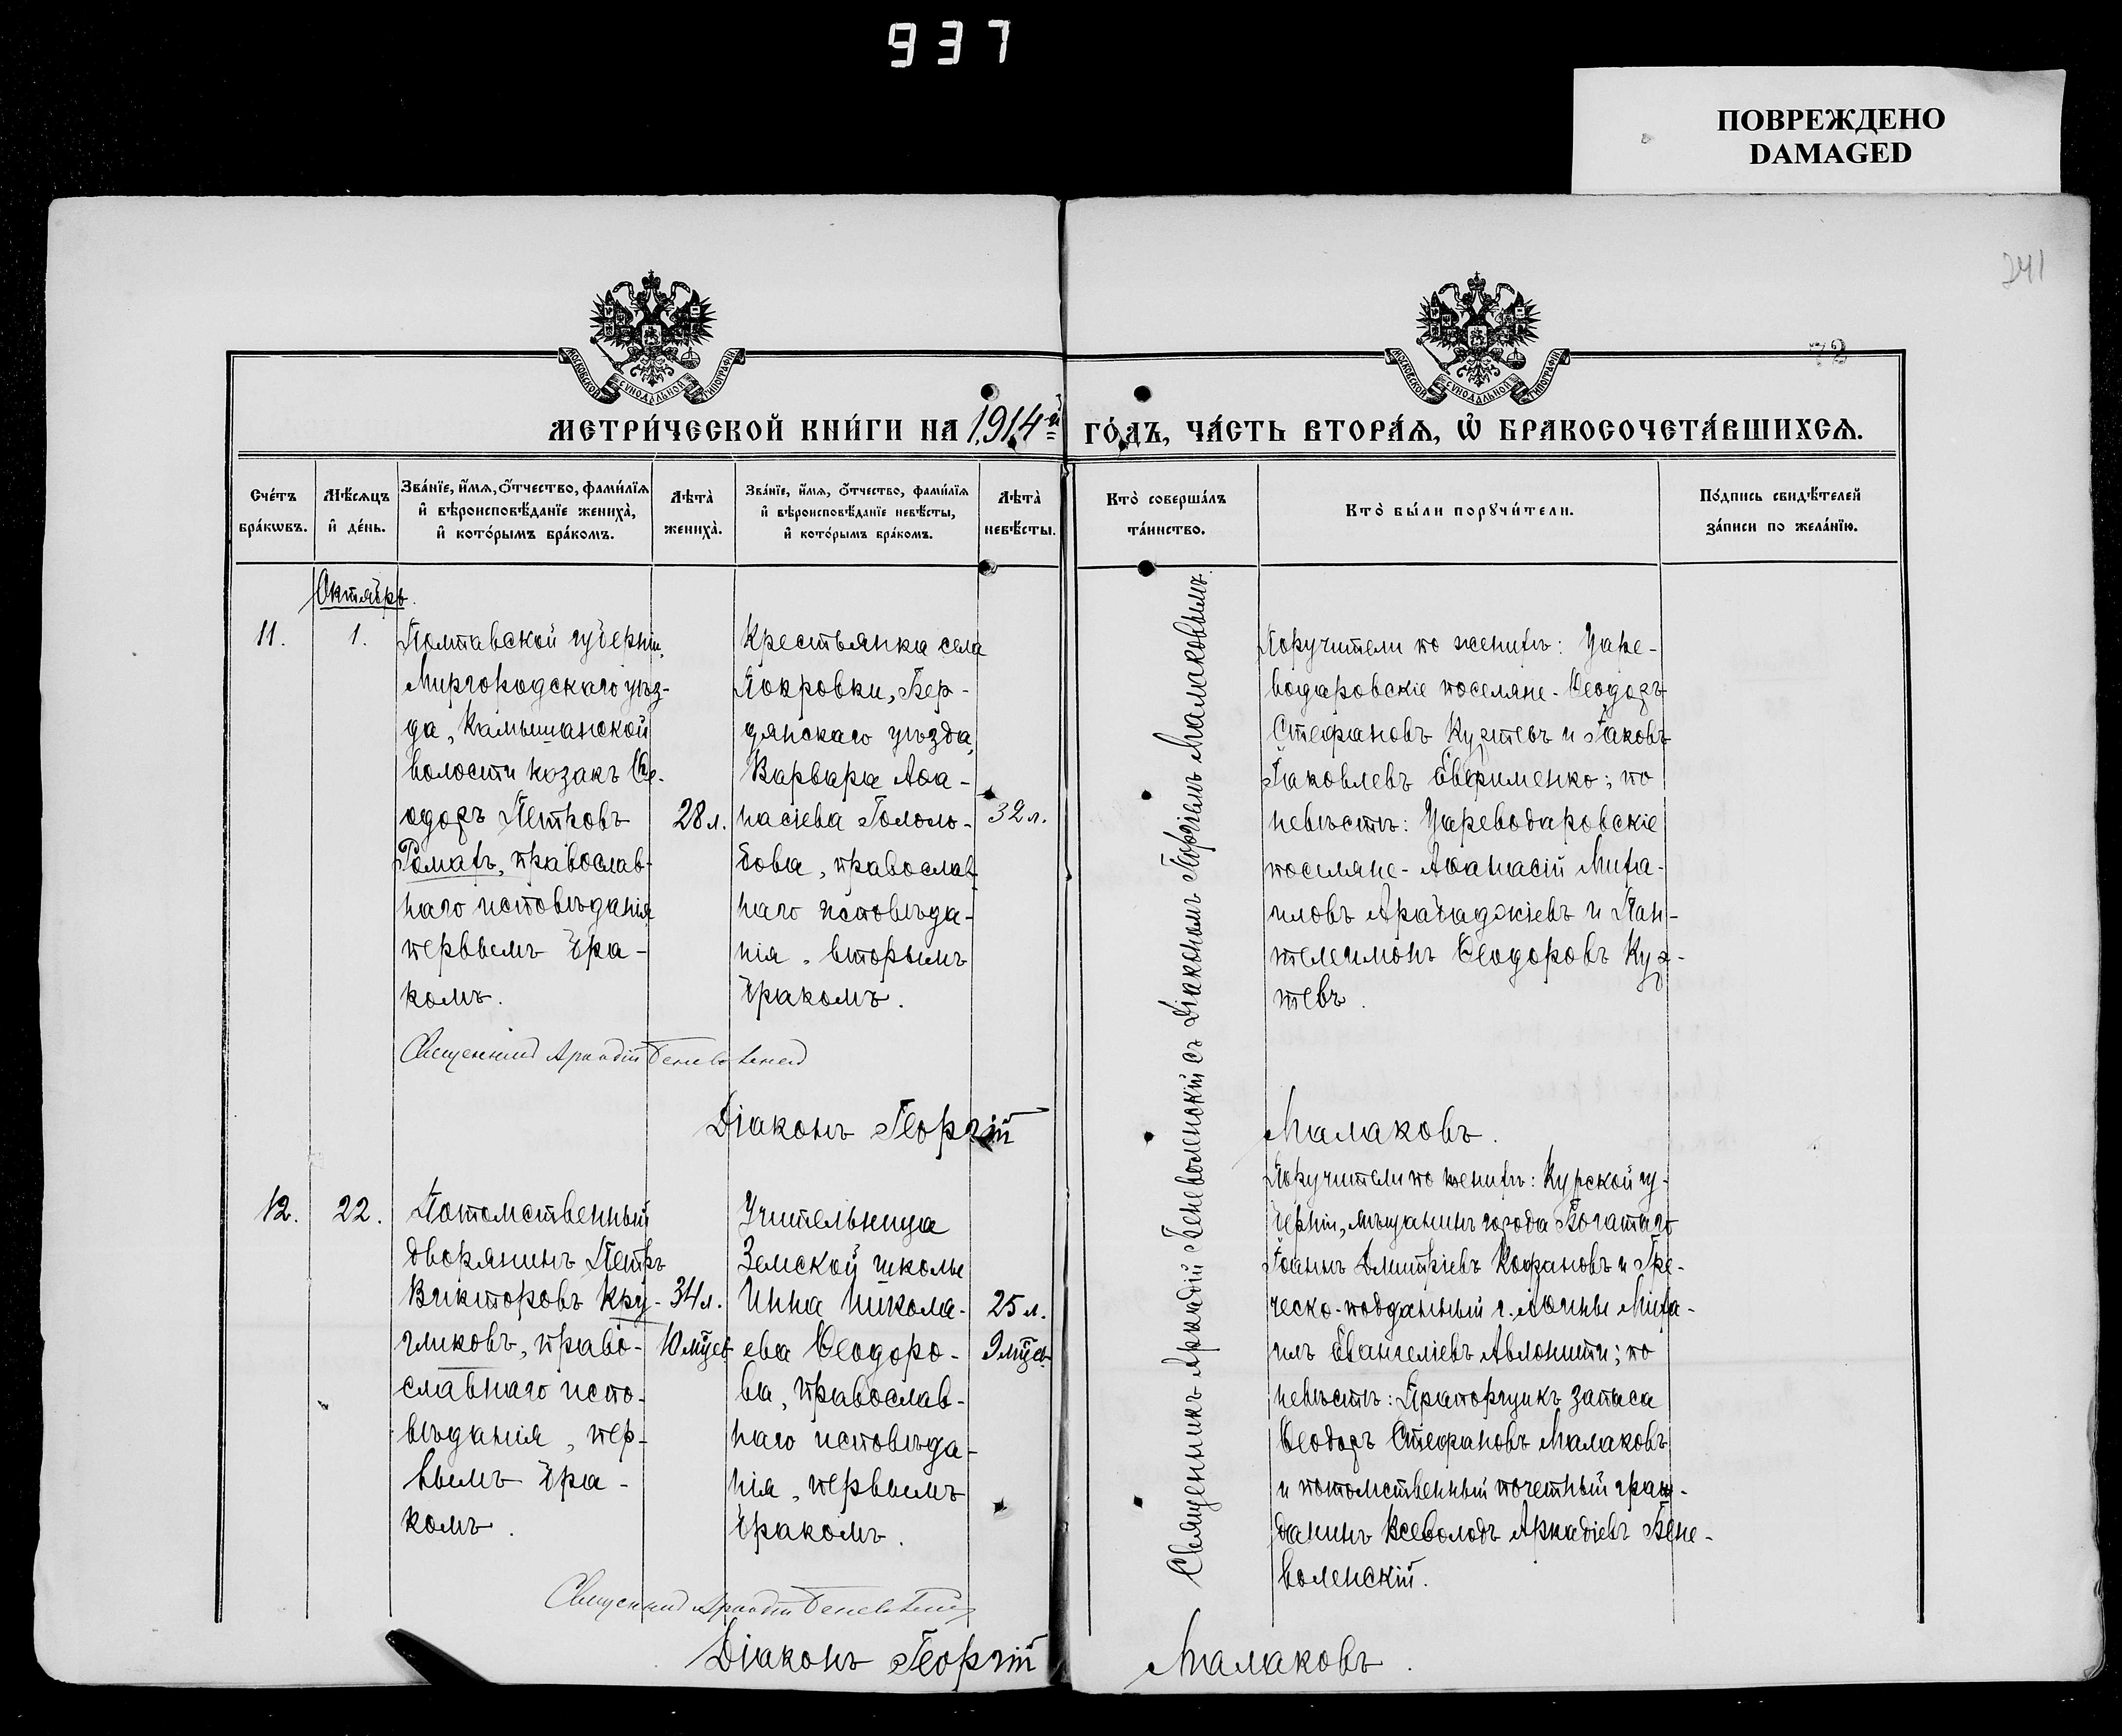 937
ПОВРЕЖДЕНО
DAMAGED
241
72
МОСКОВСКОЙ СѴНОДАЛЬНОЙ ТИПОГРАФІИ
МОСКОВСКОЙ СѴНОДАЛЬНОЙ ТИПОГРАФІИ
МЕТРИ́ЧЕСКОЙ КНИ́ГИ НА 1914-й ГО́ДЪ, ЧА́СТЬ ВТОРА́Ѧ, Ѡ҆ БРАКОСОЧЕТА́ВШИХСѦ.
Сче́тъ
бра́кѡвъ.
Мѣ́сѧцъ
и҆ де́нь.
Зва́нїе, и҆́мѧ, ѻ҆́тчество, фами́лїѧ
и҆ вѣроисповѣ́данїе жениха̀,
и҆ кото́рымъ бра́комъ.
Лѣта̀
жениха̀.
Зва́нїе, и҆́мѧ, ѻ҆́тчество, фами́лїѧ
и҆ вѣроисповѣ́данїе невѣ́сты,
и҆ кото́рымъ бра́комъ.
Лѣта̀
невѣ́сты.
Кто̀ соверша́лъ
та́инство.
Кто̀ бы́ли порꙋчи́тели.
По́дпись свидѣ́телей
за́писи по жела́нїю.
Октябрь.
11.
1.
Полтавской губерніи,
Миргородскаго уѣз-
да, Камышанской
волости козакъ Ѳе-
одоръ Петровъ
Ромахъ, православ-
наго исповѣданія,
первымъ бра-
комъ.
28 л.
Крестьянка села
Покровки, Бер-
дянскаго уѣзда,
Варвара Аѳа-
насіева Гололо-
бова, православ-
наго исповѣда-
нія, вторымъ
бракомъ.
32 л.
Священникъ Аркадій Беневоленскій съ Діакономъ Георгіемъ Малаковымъ.
Поручители по женихѣ: Царе-
водаровскіе поселяне - Ѳеодоръ
Стефановъ Куртевъ и Іаковъ
Іаковлевъ Евфименко; по
невѣстѣ: Цареводаровскіе
поселяне - Аѳанасій Миха-
иловъ Арабаджіевъ и Пан-
телеимонъ Ѳеодоровъ Кур-
тевъ.
Священникъ Аркадій Беневоленскій
Діаконъ Георгій Малаковъ.
12.
22.
Потомственный
дворянинъ Петръ
Викторовъ Кру-
гликовъ, право-
славнаго испо-
вѣданія, пер-
вымъ бра-
комъ.
34 л.
10 мѣс.
Учительница
Земской школы
Инна Никола-
ева Ѳеодоро-
ва, православ-
наго исповѣда-
нія, первымъ
бракомъ.
25 л.
9 мѣс.
Поручители по женихѣ: Курской гу-
берніи, мѣщанинъ города Богатаго
Іоаннъ Димитріевъ и Гре-
ческо-подданный г. Миха-
илъ Евангеліевъ Авлонити; по
невѣстѣ: Прапорщикъ запаса
Ѳеодоръ Стефановъ Малаковъ
и потомственный почетный граж-
данинъ Всеволодъ Аркадіевъ Бене-
воленскій.
Священникъ Аркадій Беневоленскій
Діаконъ Георгій Малаковъ.